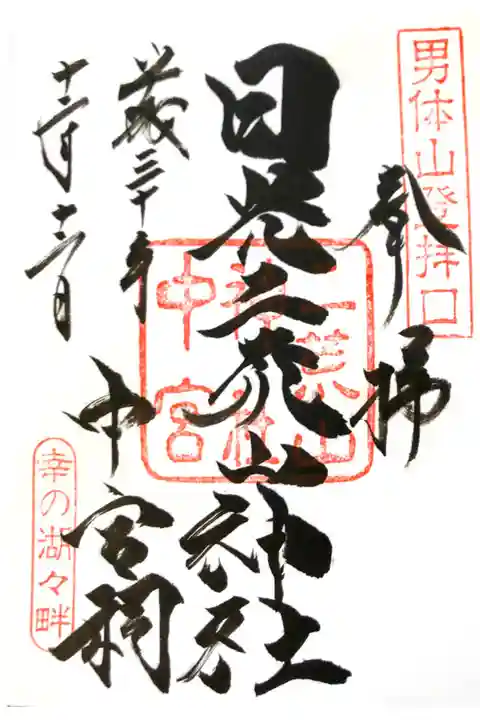 男体山登拝口
奉拝
日光二荒山神社
二荒山
神社
中宮
中宮祠
平成三十年
十二月十二日
幸の湖々畔